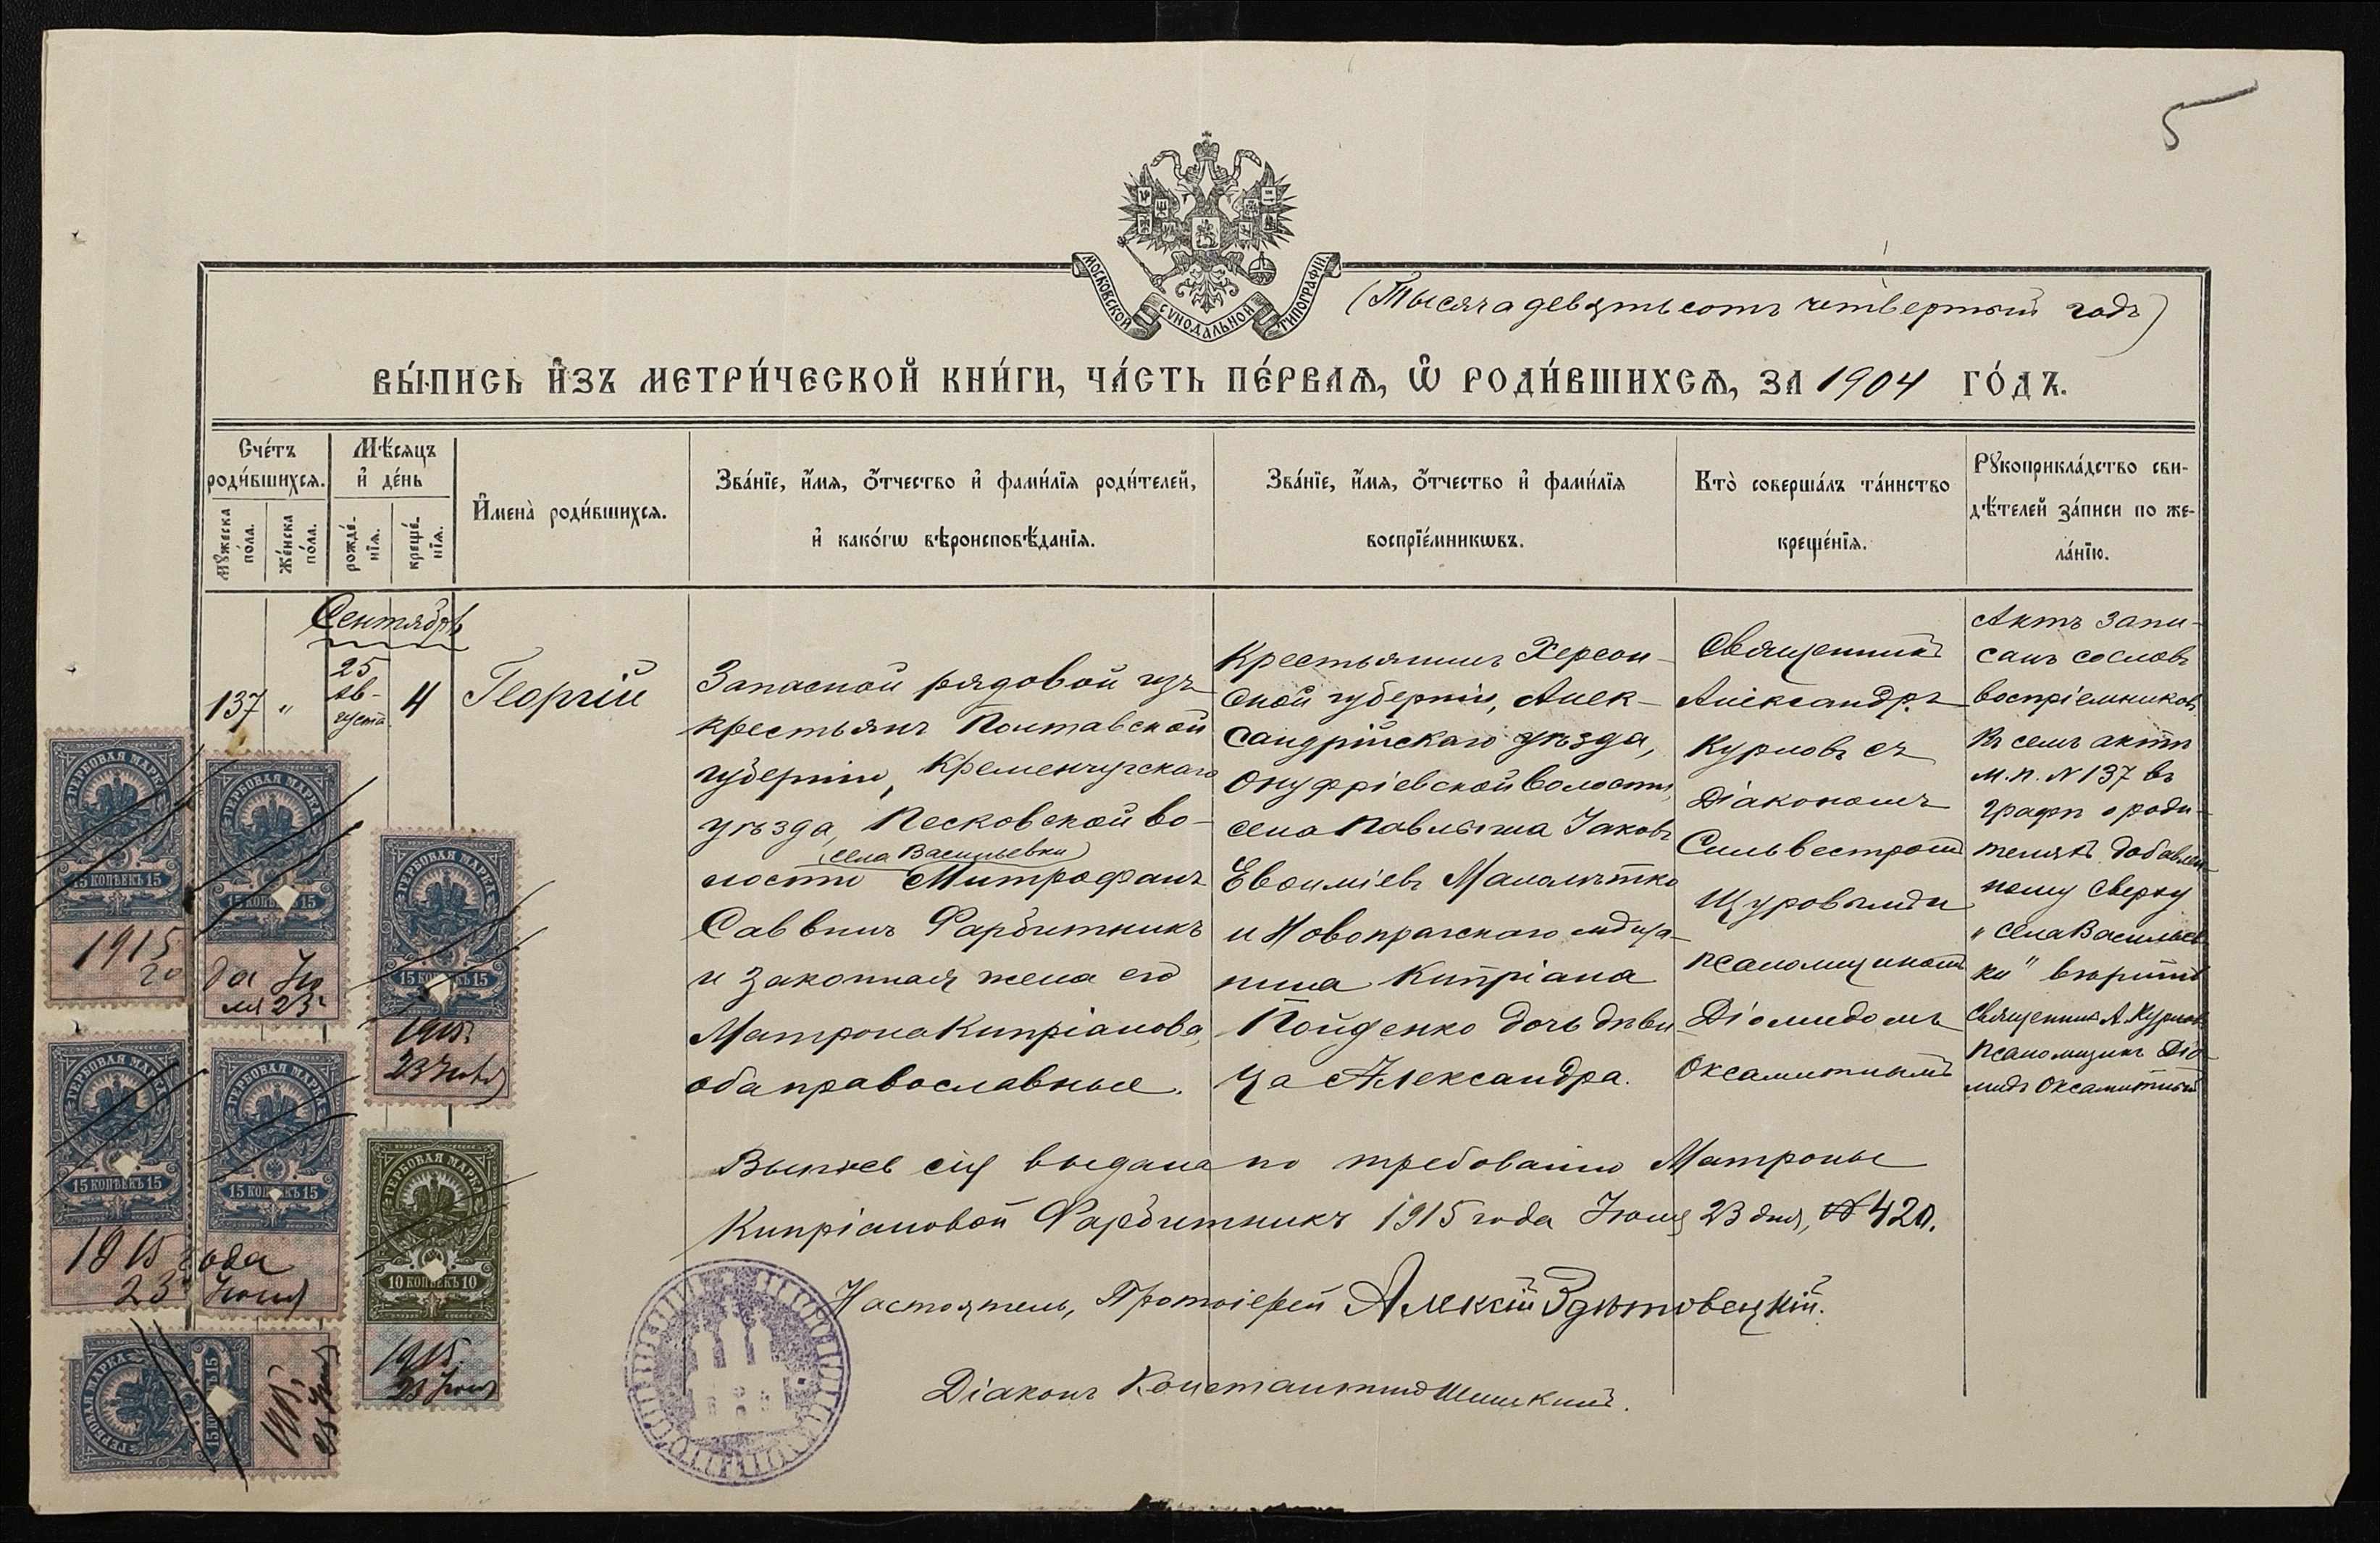 5
МОСКОВСКОЙ СѴНОДАЛЬНОЙ ТИПОГРАФІИ.
(Тысяча девятьсотъ четвертый годъ)
ВЫ́ПИСЬ И҆ЗЪ МЕТРИ́ЧЕСКОЙ КНИ́ГИ, ЧА́СТЬ ПЕ́РВАѦ, Ѡ҆ РОДИ́ВШИХСѦ, ЗА 1904 ГО́ДЪ.
Сче́тъ
роди́вшихсѧ.
Мꙋ́жеска
по́ла.
Же́нска
по́ла.
Мѣ́сяцъ
и҆ де́нь
рожде́-
нїѧ.
креще́-
нїѧ.
И҆мена̀ роди́вшихсѧ.
Зва́нїе, и҆́мѧ, ѻ҆́тчество и҆ фами́лїѧ роди́телей,
и҆ како́гѡ вѣроисповѣ́данїѧ.
Зва́нїе, и҆́мѧ, ѻ҆́тчество и҆ фами́лїѧ
воспрїе́мникѡвъ.
Кто̀ соверша́лъ та́инство
креще́нїѧ.
Рꙋкоприкла́дство сви-
дѣ́телей за́писи по же-
ла́нїю.
Сентябрь
137
"
25
ав-
густа
4
Георгій
Запасной рядовой изъ
крестьянъ Полтавской
губерніи, Кременчугскаго
уѣзда, Песковской во-
(села Васильевки)
лости Митрофанъ
Саввинъ Фарбитникъ
и законная жена его
Матрона Кипріанова,
оба православные.
Крестьянинъ Херсон-
ской губерніи, Алек-
сандрійскаго уѣзда,
Онуфріевской волости,
села Павлыша Іаковъ
Евѳиміевъ Малолѣтко
и Новопражскаго мѣща-
нина Кипріана
Пойденко дочь дѣви
ца Александра.
Священникъ
Александръ
Курловъ съ
Діакономъ
Сильвестромъ
Щуровымъ и
псаломщикомъ
Діомидомъ
Оксамитнымъ
Актъ запи-
санъ со словъ
воспріемниковъ.
Въ семъ актѣ
м.п. № 137 въ
графѣ о роди-
теляхъ добавлен-
ному сверху
"села Васильев-
ки" вѣрить
Священникъ А. Курловъ
Псаломщикъ Діо-
мидъ Оксамитный
Выпись сія выдана по требованію Матроны
Кипріановой Фарбитникъ 1915 года Іюня 23 дня, № 420.
Настоятель, Протоіерей Алексій
Діаконъ Константинъ
ГЕРБОВАЯ МАРКА
15 КОПѢЕКЪ 15
1915
го
ГЕРБОВАЯ МАРКА
15 КОПѢЕКЪ 15
да Iю
ня 23
ГЕРБОВАЯ МАРКА
15 КОПѢЕКЪ 15
1915
23 Іюня
ГЕРБОВАЯ МАРКА
15 КОПѢЕКЪ 15
ГЕРБОВАЯ МАРКА
15 КОПѢЕКЪ 15
1915 года
23 Іюня
ГЕРБОВАЯ МАРКА
10 КОПѢЕКЪ 10
1915.
23 Іюня
ГЕРБОВАЯ МАРКА
15 КОПѢЕКЪ 15
1915,
23 Іюня